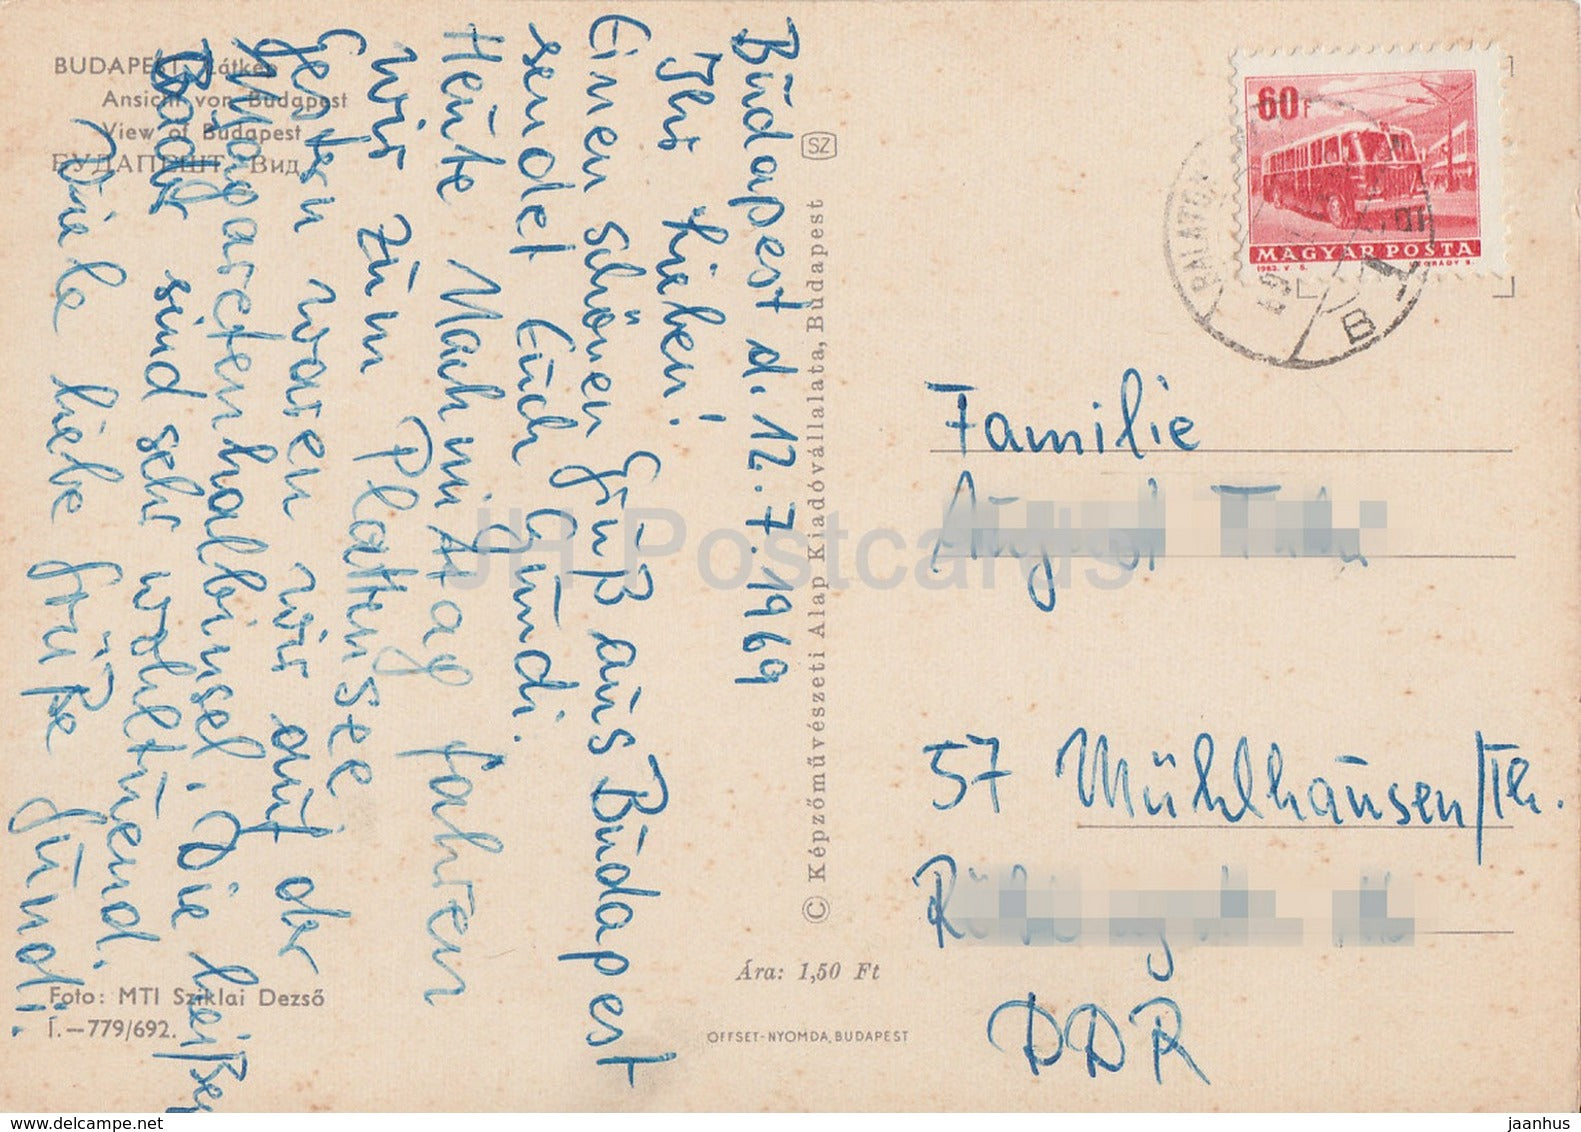 BUDAPEST. Látkép
Ansicht von Budapest
View of Budapest
БУДАПЕШТ. Вид
Budapest d. 12.7.1969
Ihr Lieben!
Einen schönen Gruß aus Budapest
sendet Euch Gundi.
Heute Nachmittag fahren
wir zum Plattensee
Gestern waren wir auf der
Margaretenhalbinsel. Die heißen
Bäder sind sehr wohltuend.
Viele liebe Grüße Gundi.
Foto: MTI Sziklai Dezső
I.—779/692.
SZ
© Képzőművészeti Alap Kiadóvállalata, Budapest
Ára: 1,50 Ft
OFFSET-NYOMDA, BUDAPEST
60f
MAGYAR POSTA
1963. V. 5.
BALATON
69
B
Familie
August
57 Mühlhausen/Th.
DDR
JH Postcards
www.delcampe.net
jaanhus